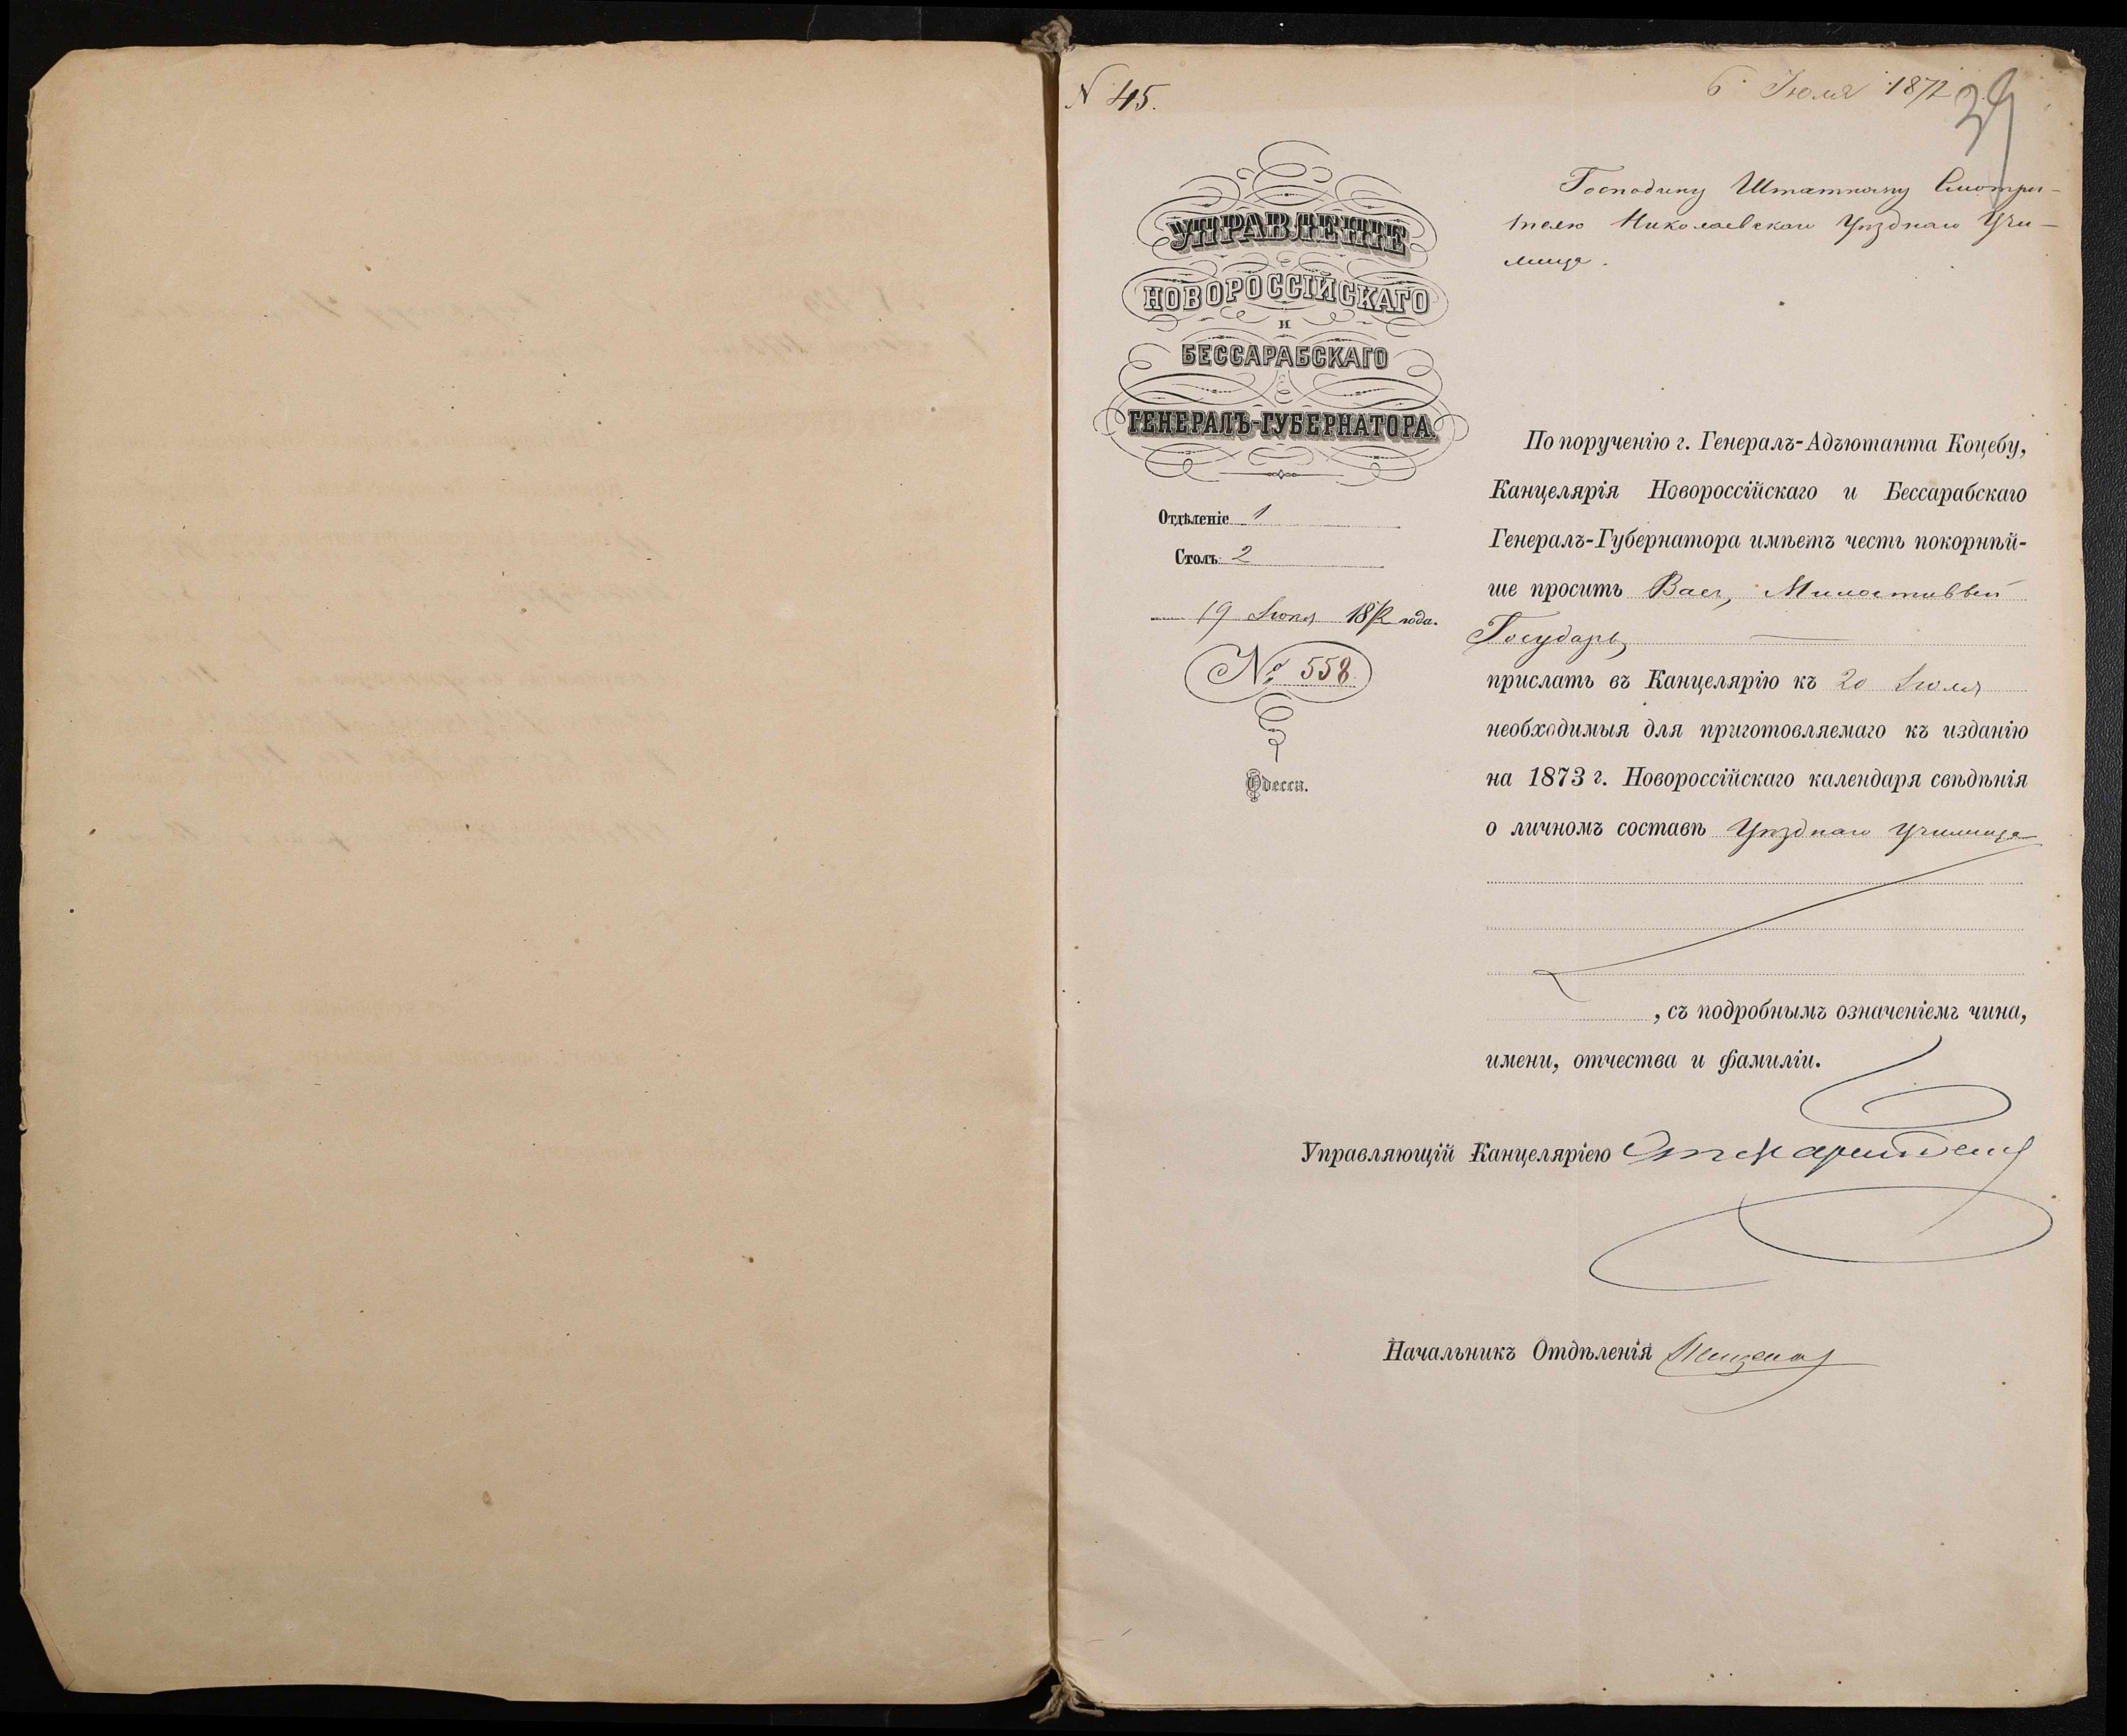 N 45.
6 Июля 1872
39
УПРАВЛЕНІЕ
НОВОРОССІЙСКАГО
И
БЕССАРАБСКАГО
ГЕНЕРАЛЪ-ГУБЕРНАТОРА.
Отдѣленіе 1
Столъ 2
19 1872 года.
№ 558
Одесса.
Господину Штатному Смотри-
телю Николаевскаго Уѣзднаго Учи-
лища.
По порученію г. Генералъ-Адъютанта Коцебу,
Канцелярія Новороссійскаго и Бессарабскаго
Генералъ-Губернатора имѣетъ честь покорнѣй-
ше просить Васъ, Милостивый
Государь,
прислать въ Канцелярію къ 20 Іюля
необходимыя для приготовляемаго къ изданію
на 1873 г. Новороссійскаго календаря свѣдѣнія
о личномъ составѣ Уѣзднаго Училища
, съ подробнымъ означеніемъ чина,
имени, отчества и фамиліи.
Управляющій Канцеляріею
Начальникъ Отдѣленія